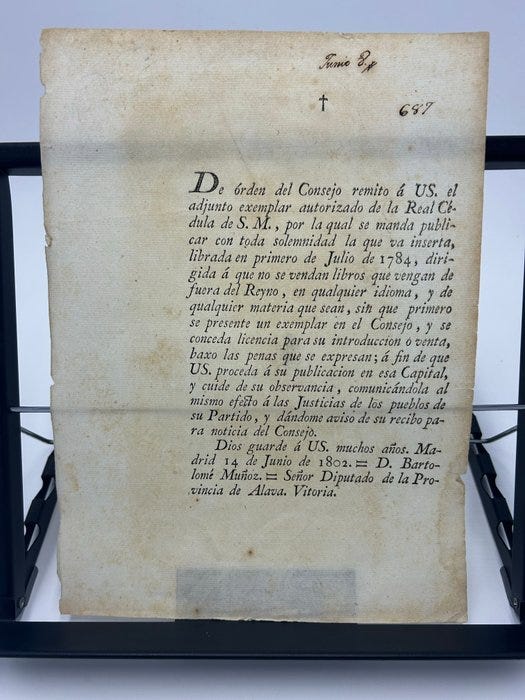 Junio 8
687
De órden del Consejo remito á US. el
adjunto exemplar autorizado de la Real Cé-
dula de S. M., por la qual se manda publi-
car con toda solemnidad la que va inserta,
librada en primero de Julio de 1784, diri-
gida á que no se vendan libros que vengan de
fuera del Reyno, en qualquier idioma, y de
qualquier materia que sean, sin que primero
se presente un exemplar en el Consejo, y se
conceda licencia para su introduccion ó venta,
baxo las penas que se expresan; á fin de que
US. proceda á su publicacion en esa Capital,
y cuide de su observancia, comunicándola al
mismo efecto á las Justicias de los pueblos de
su Partido, y dándome aviso de su recibo pa-
ra noticia del Consejo.
Dios guarde á US. muchos años. Ma-
drid 14 de Junio de 1802.= D. Barto-
lomé Muñoz.= Señor Diputado de la Pro-
vincia de Alava. Vitoria.